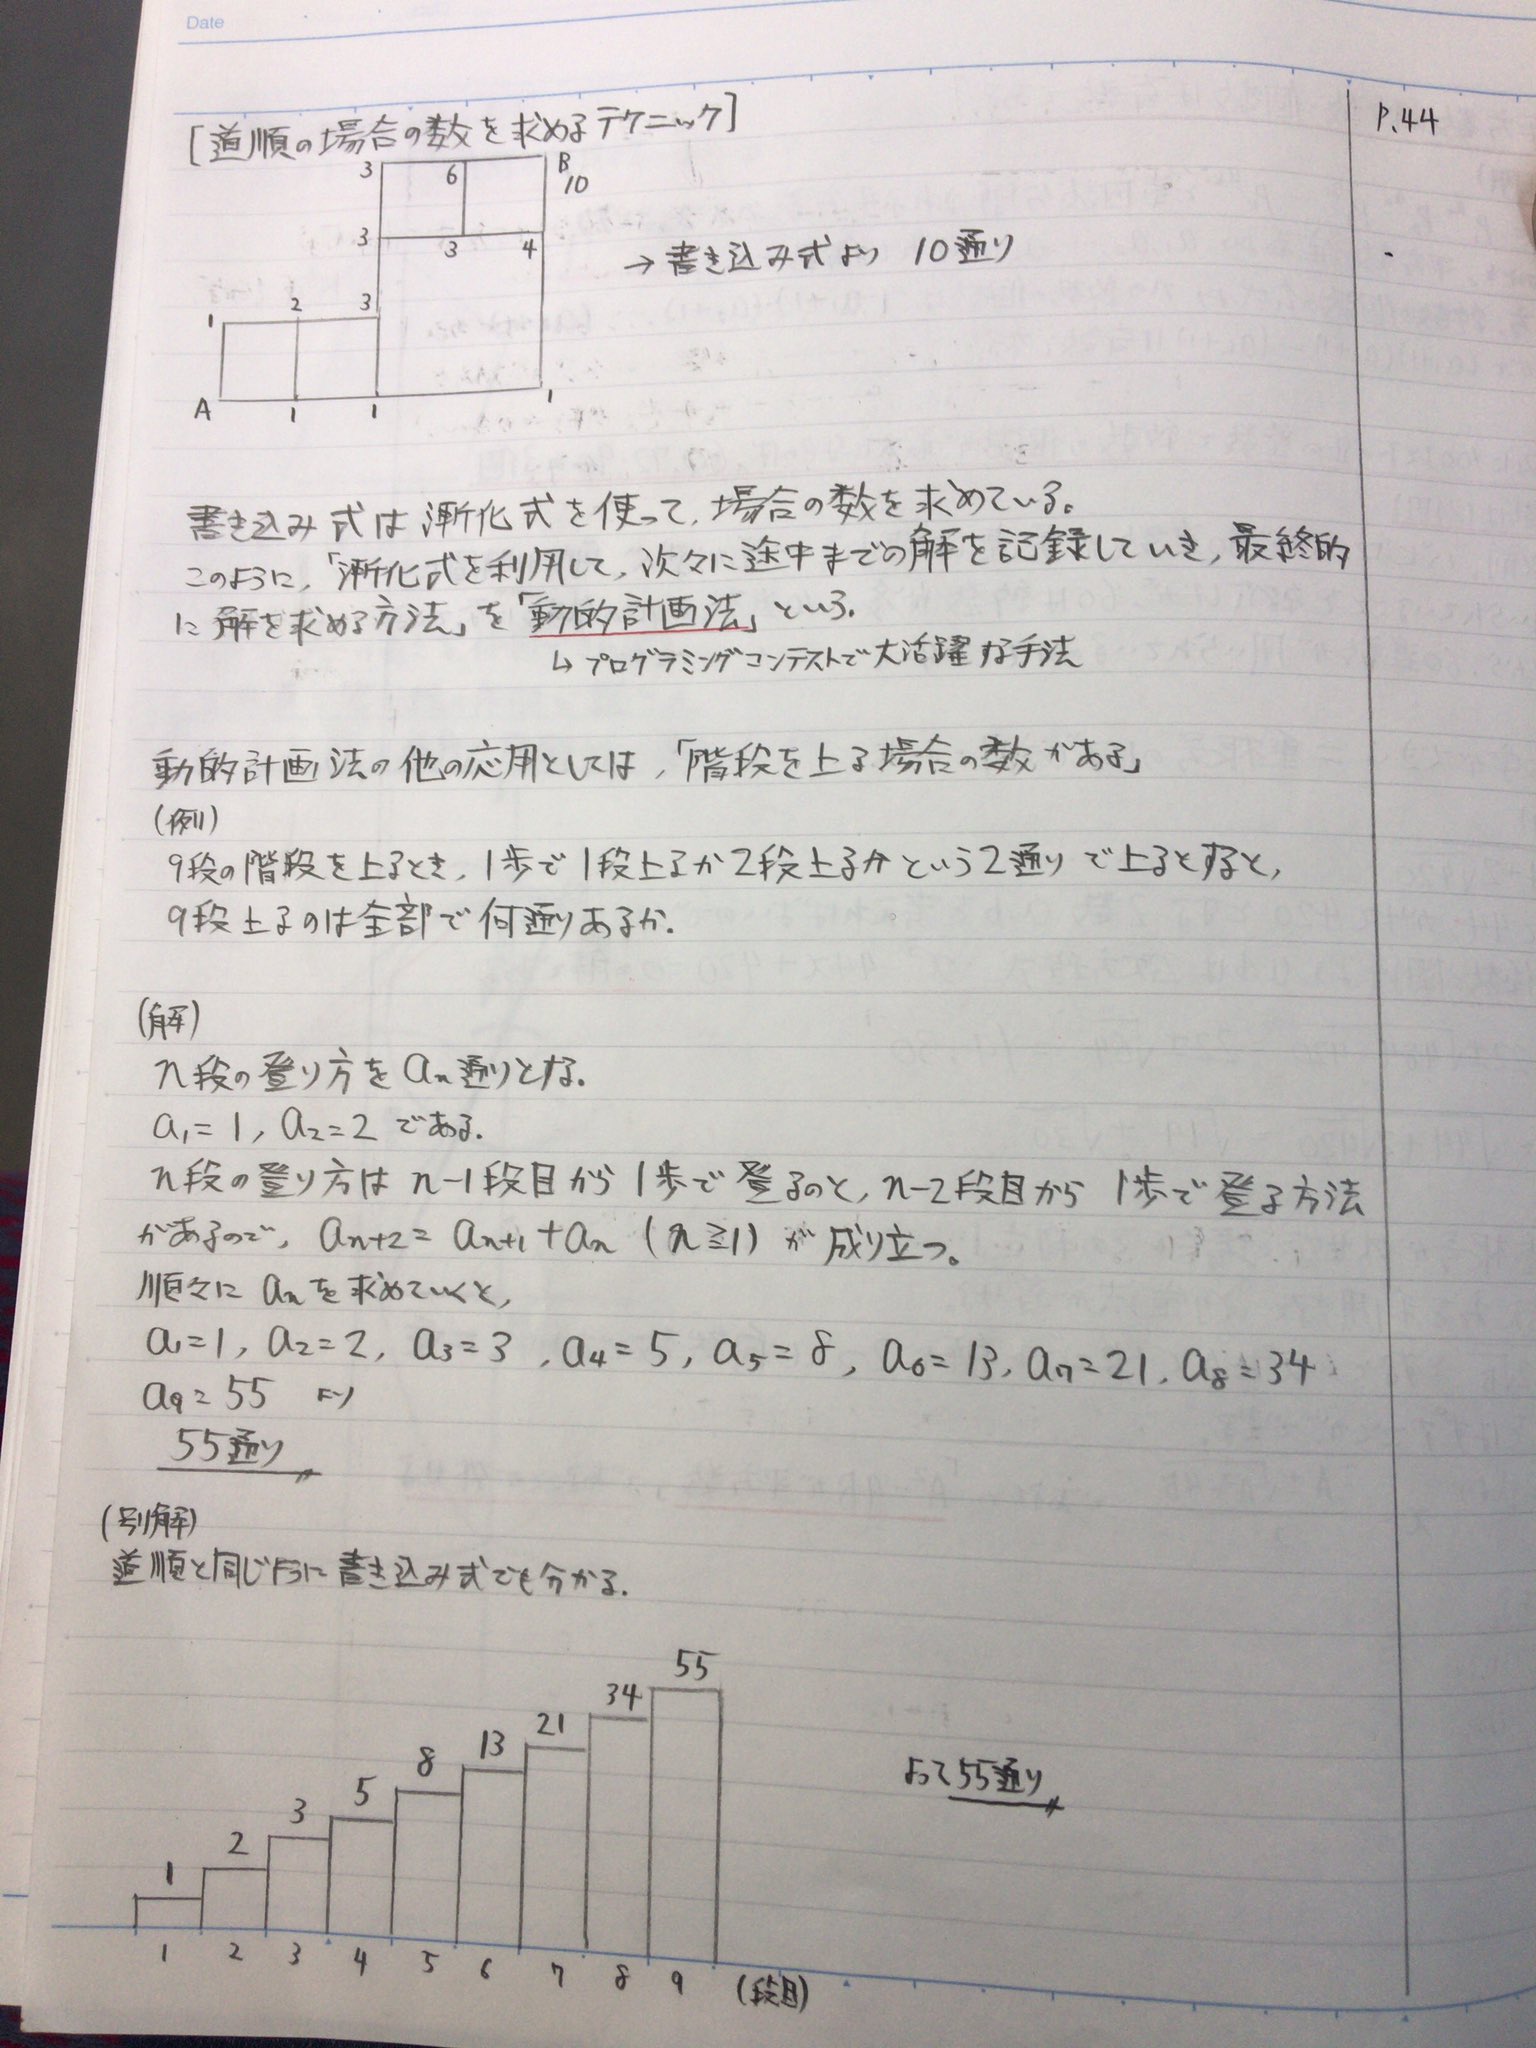 Date
P.44
[道順の場合の数を求めるテクニック]
3 6 B
10
3 3 4
1 2 3
A 1 1 1
→書き込み式より 10通り
書き込み式は漸化式を使って、場合の数を求めている。
このように、「漸化式を利用して、次々に途中までの解を記録していき、最終的
に解を求める方法」を「動的計画法」という。
↳プログラミングコンテストで大活躍な手法
動的計画法の他の応用としては、「階段を上る場合の数がある」
(例)
9段の階段を上るとき、1歩で1段上るか2段上るかという2通りで上るとすると、
9段上るのは全部で何通りあるか.
(解)
n段の登り方をan通りとする.
a1=1, a2=2 である.
n段の登り方はn-1段目から1歩で登るのと, n-2段目から 1歩で登る方法
があるので, an+2=an+1+an (n≧1) が成り立つ。
順々にanを求めていくと,
a1=1, a2=2, a3=3, a4=5, a5=8, a6=13, a7=21, a8=34
a9=55 より
55通り
(別解)
道順と同じように書き込み式でも分かる.
1 2 3 5 8 13 21 34 55
1 2 3 4 5 6 7 8 9 (段目)
よって55通り